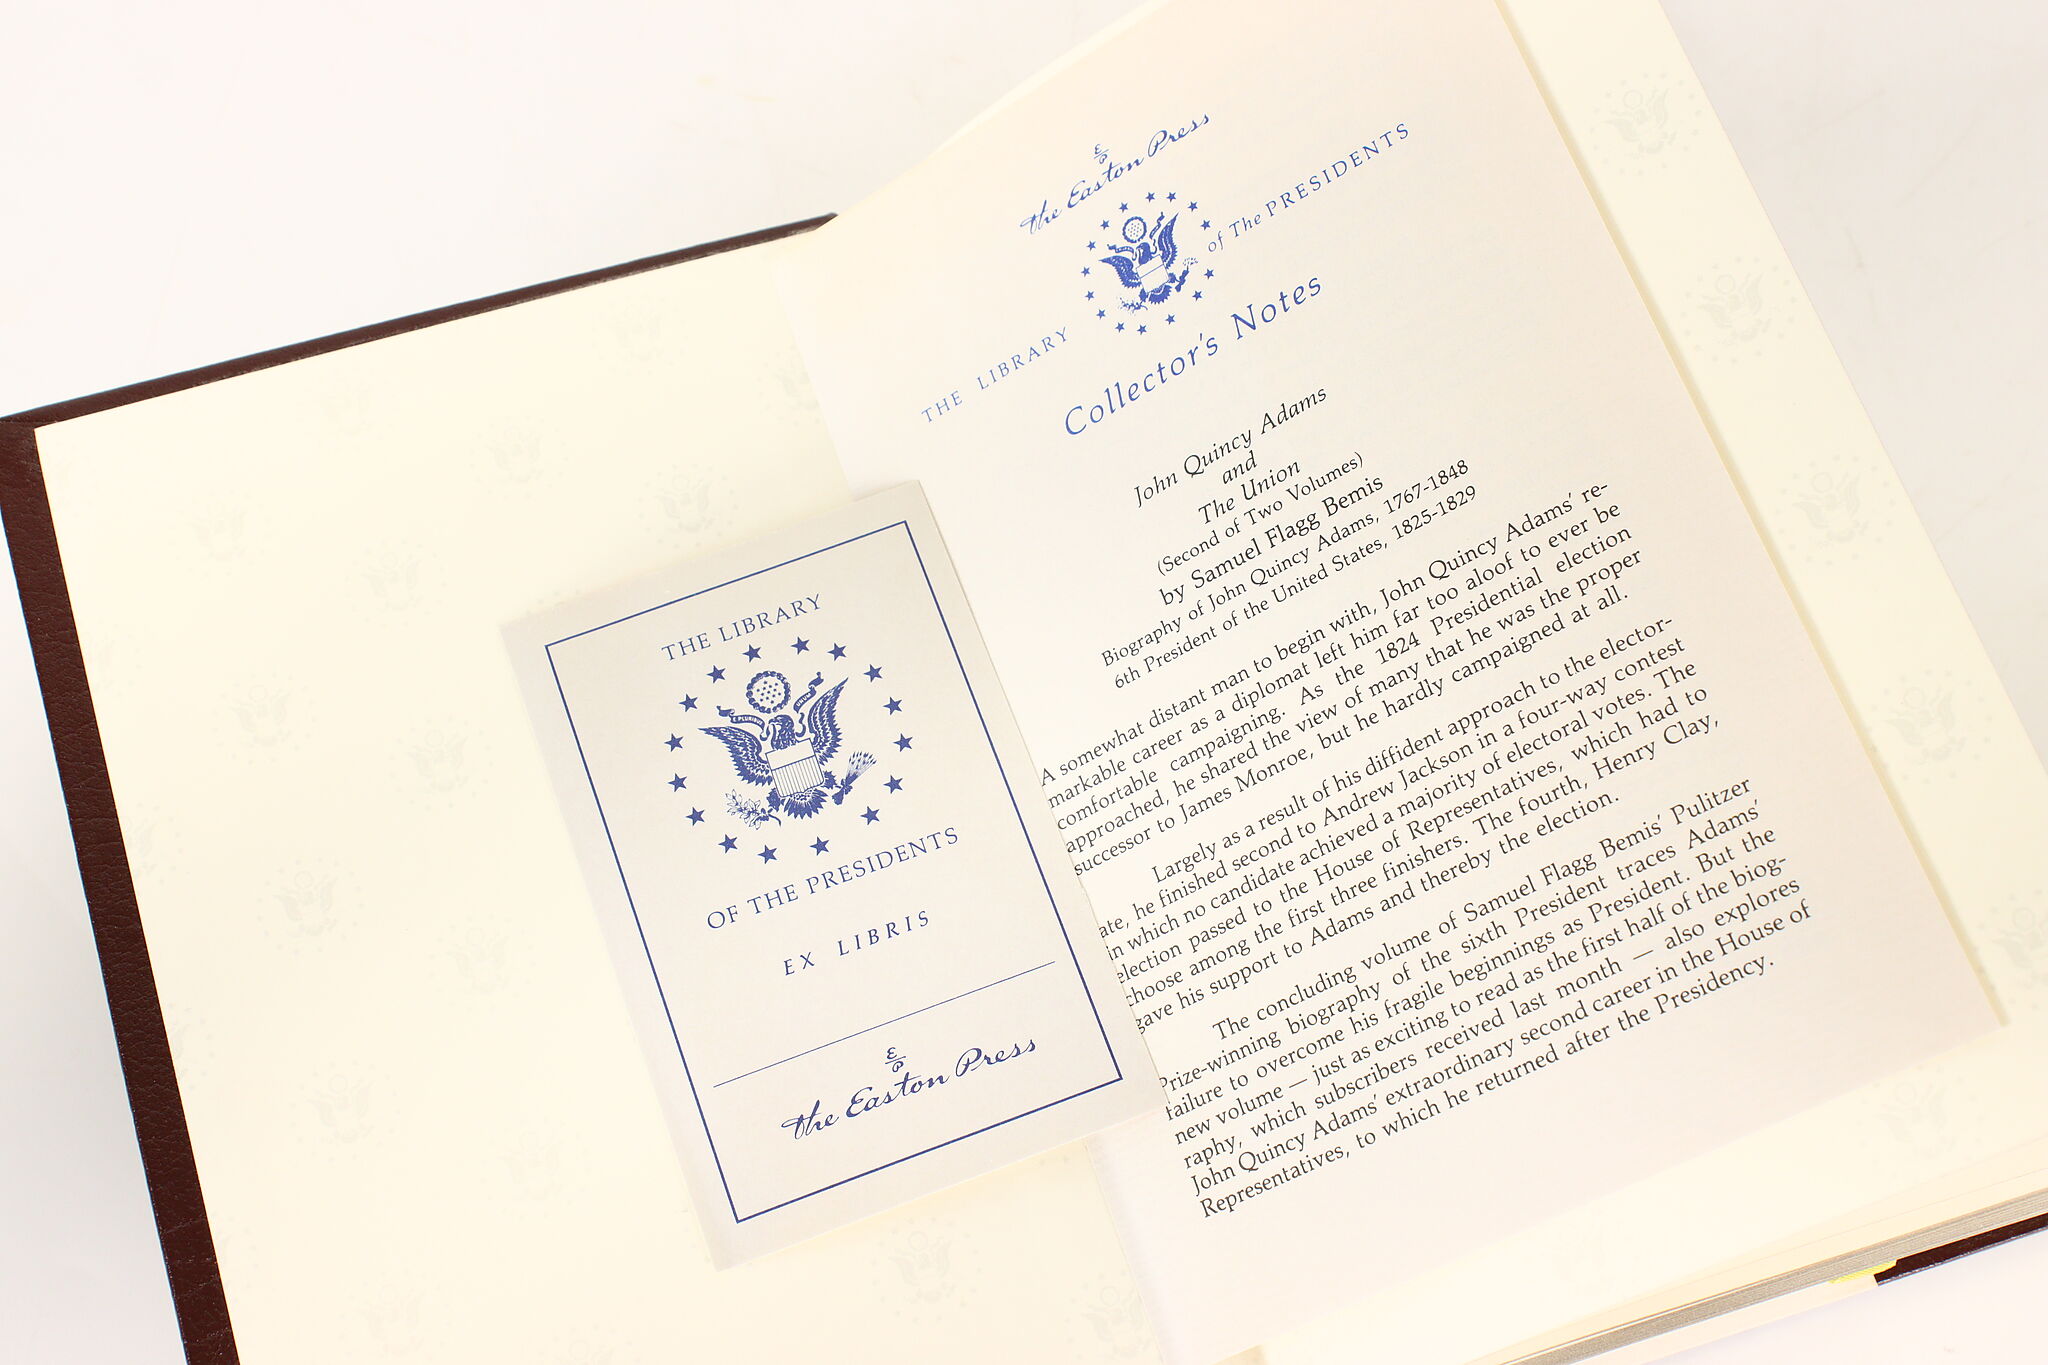 THE LIBRARY
E PLURIBUS UNUM
OF THE PRESIDENTS
EX LIBRIS
EP
the Easton Press
EP
the Easton Press
THE LIBRARY of The PRESIDENTS
Collector's Notes
John Quincy Adams
and
The Union
(Second of Two Volumes)
by Samuel Flagg Bemis
Biography of John Quincy Adams, 1767-1848
6th President of the United States, 1825-1829
A somewhat distant man to begin with, John Quincy Adams' re-
markable career as a diplomat left him far too aloof to ever be
comfortable campaigning. As the 1824 Presidential election
approached, he shared the view of many that he was the proper
successor to James Monroe, but he hardly campaigned at all.
Largely as a result of his diffident approach to the elector-
ate, he finished second to Andrew Jackson in a four-way contest
in which no candidate achieved a majority of electoral votes. The
election passed to the House of Representatives, which had to
choose among the first three finishers. The fourth, Henry Clay,
gave his support to Adams and thereby the election.
The concluding volume of Samuel Flagg Bemis' Pulitzer
Prize-winning biography of the sixth President traces Adams'
failure to overcome his fragile beginnings as President. But the
new volume — just as exciting to read as the first half of the biog-
raphy, which subscribers received last month — also explores
John Quincy Adams' extraordinary second career in the House of
Representatives, to which he returned after the Presidency.